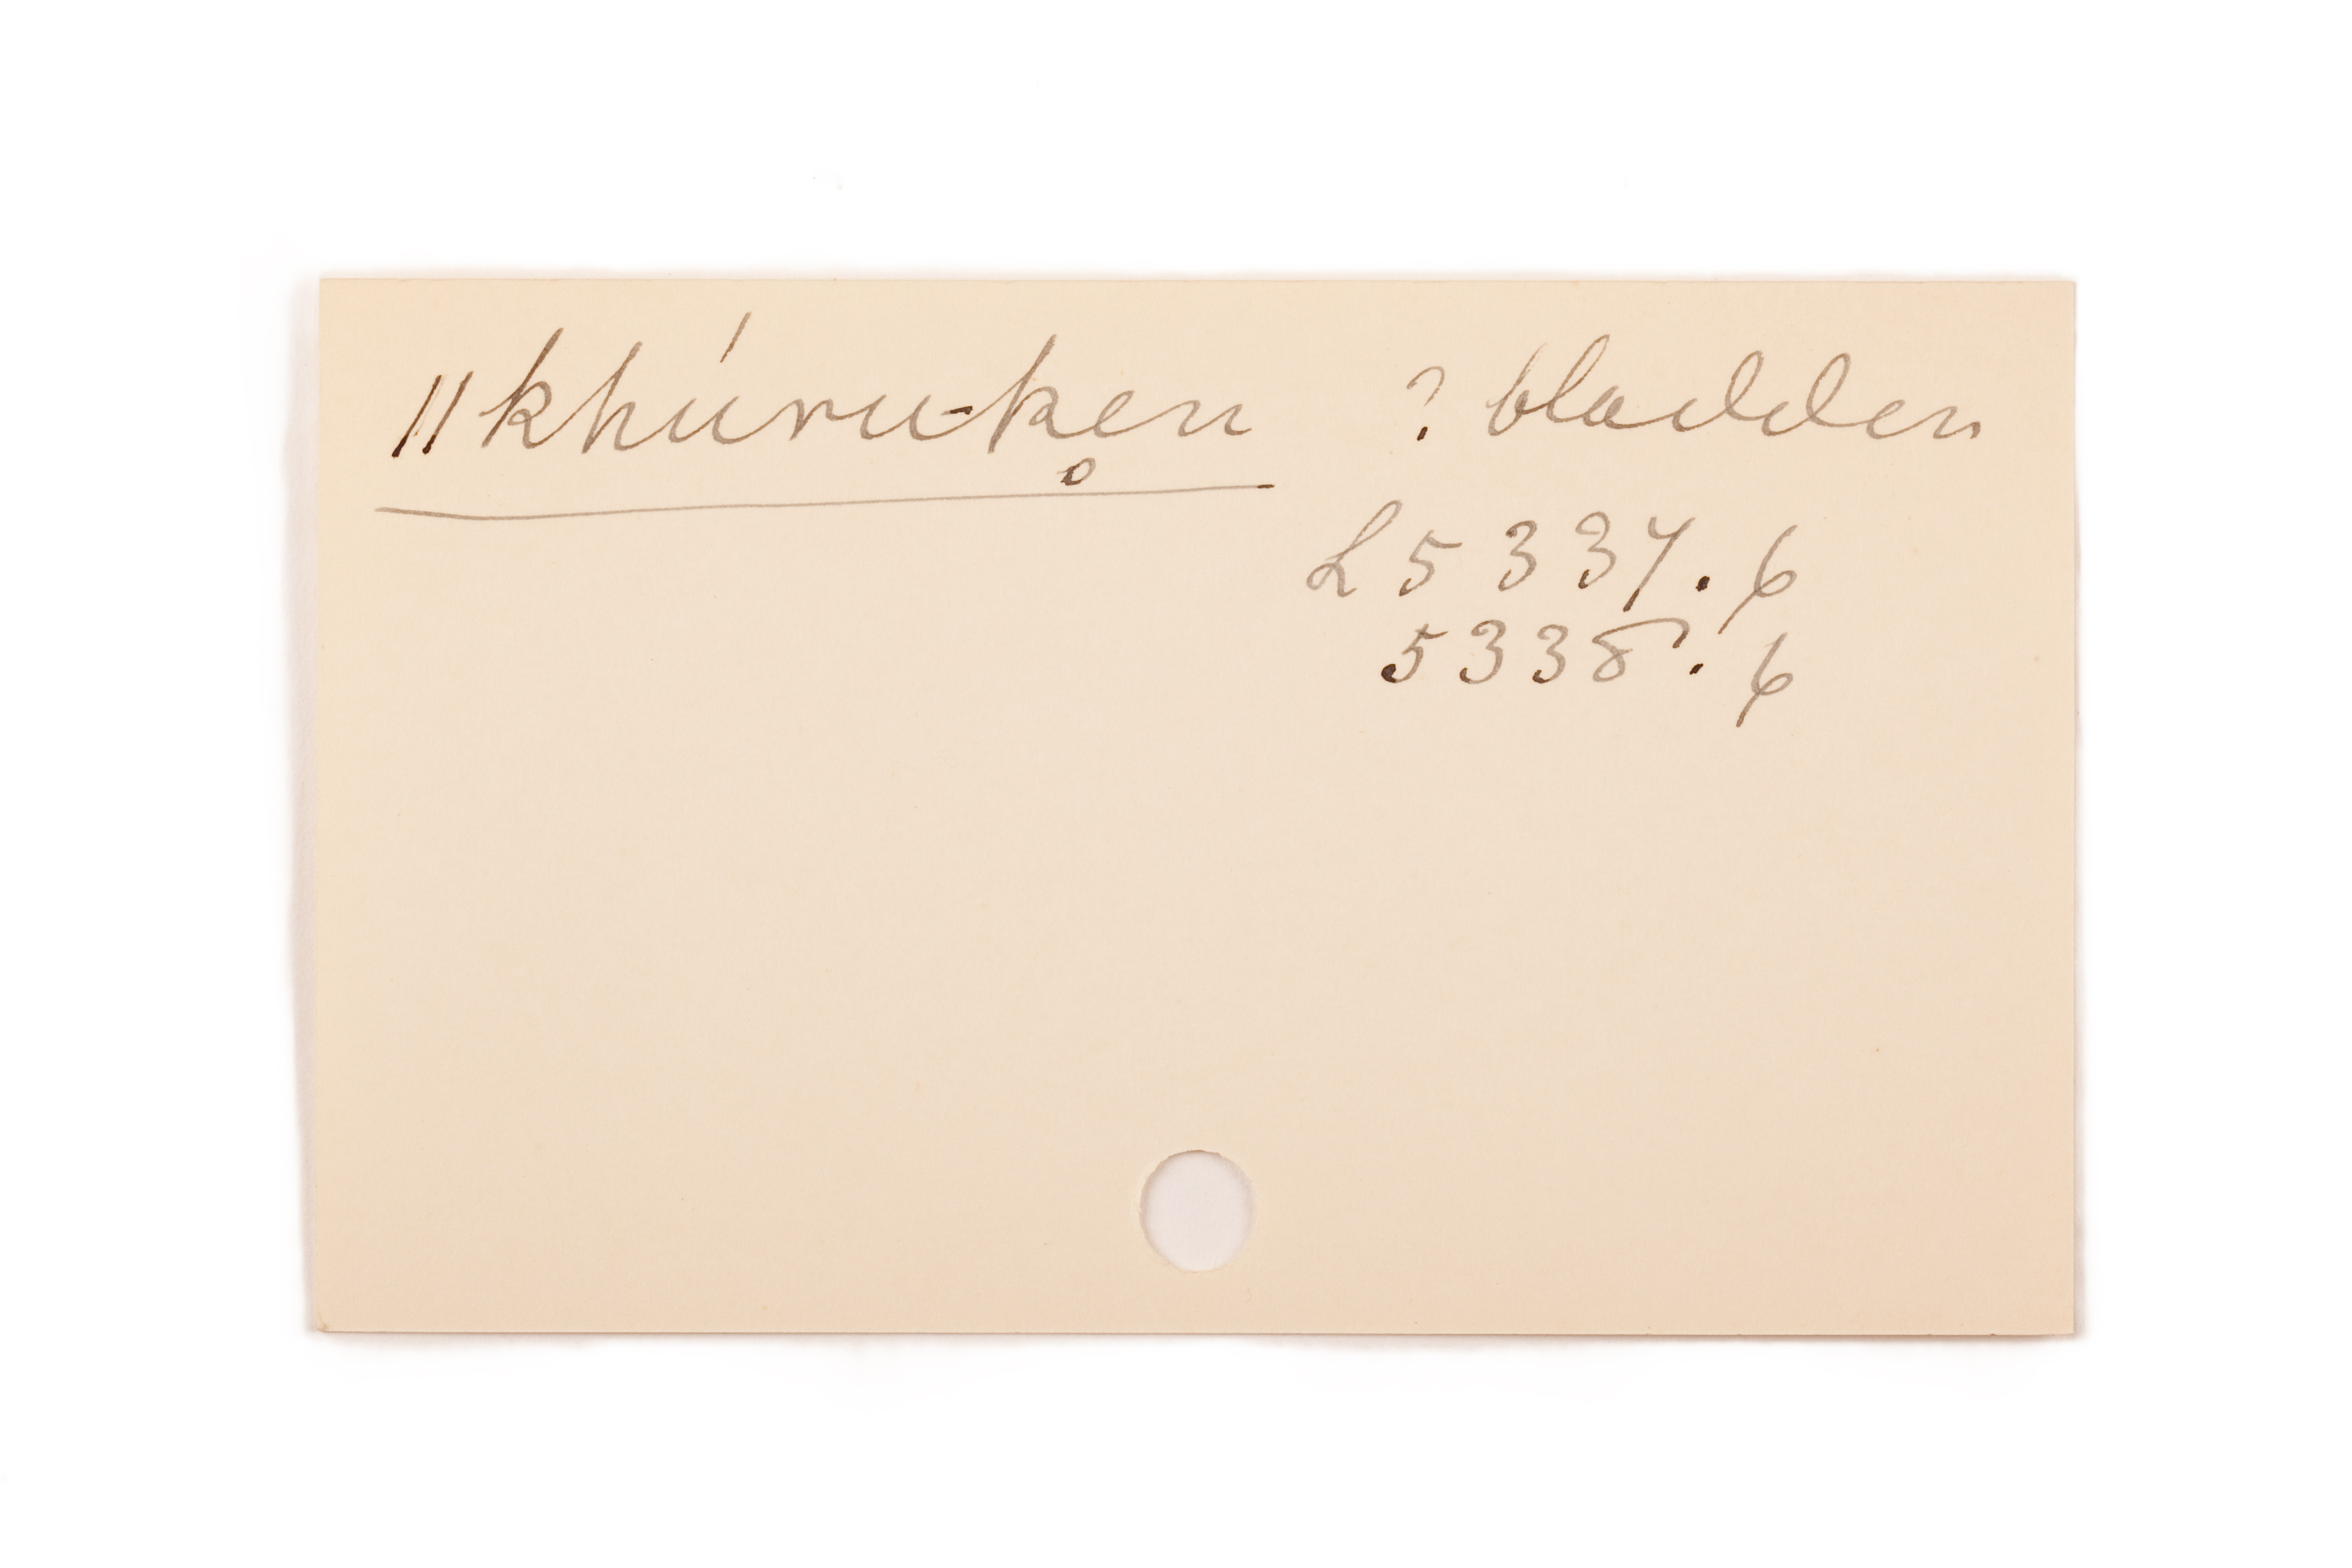 ǁkhúru-k̥en ? bladder
L 5337.6
5338.6